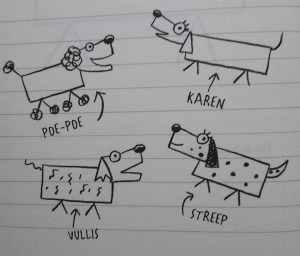 POE-POE
KAREN
VULLIS
STREEP